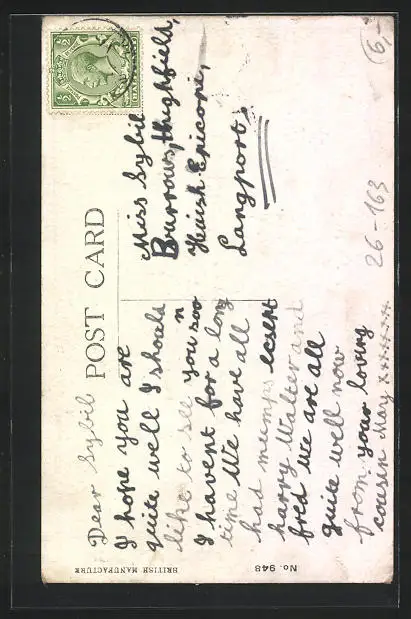 POST CARD
Dear Sybil
I hope you are
quite well I shoula
like to see you soo
n
I havent for a long
time We have all
had mumps exsept
harry Walter and
fred we are all
quite well now
from your loving
cousin May xxxxxxx
Miss Sybil
Burrows, Highfield,
Huish Epicopi,
Langport.
BRITISH MANUFACTURE
No. 948
26-163
6,-